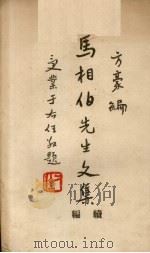 方豪編
馬相伯先生文集
續編
受業于右任敬題